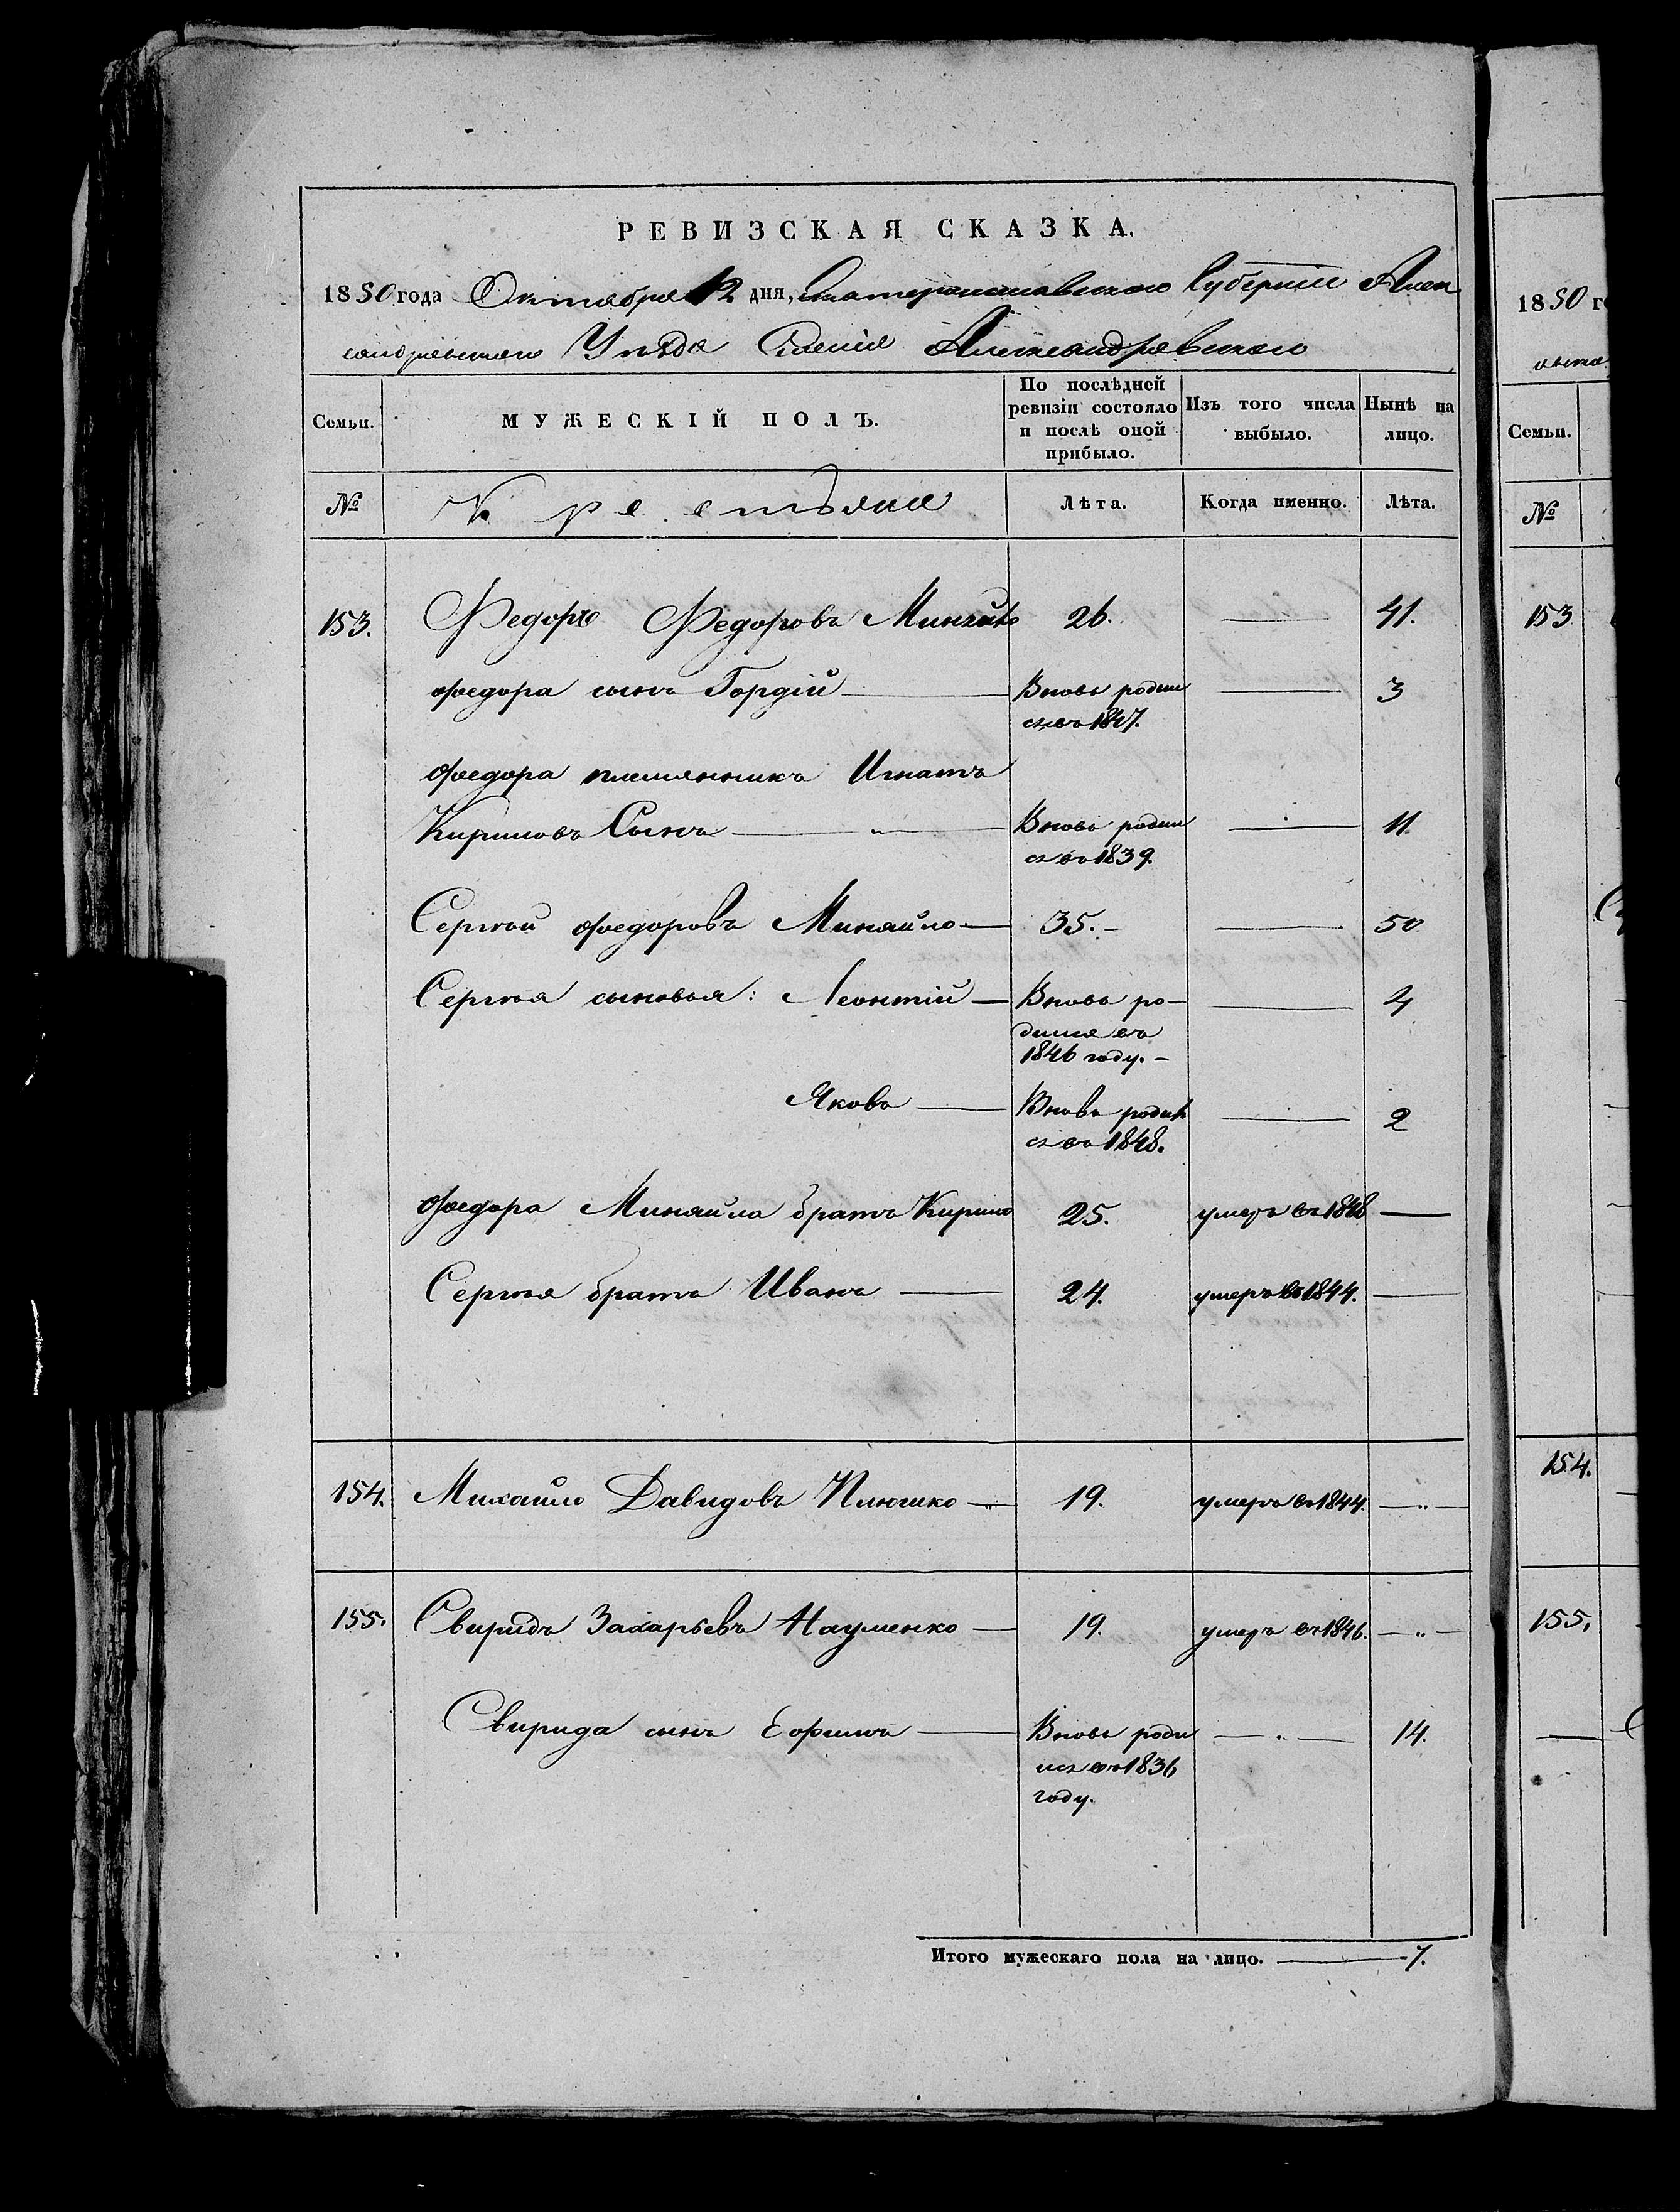 РЕВИЗСКАЯ СКАЗКА.
1850 года Октября 12 дня, Екатеринославской Губернии Алек
сандровскаго Уѣзда Селенія Александровскаго
Семьи. МУЖЕСКІЙ ПОЛЪ. По послѣдней ревизіи состояло и послѣ оной прибыло. Изъ того числа выбыло. Нынѣ на лицо.
№ Крестьяне Лѣта. Когда именно. Лѣта.
153. Федоръ Федоровъ Минайло 26. — 41.
Федора сынъ Гордій — Вновь родил — 3
ся въ 1847.
Федора племянникъ Игнатъ
Кириловъ Сынъ — Вновь родил — 11.
ся въ 1839.
Сергѣй Федоровъ Минайло — 35. — 50
Сергѣя сыновья: Леонтій — Вновь ро- — 4
дился въ
1846 году. —
Яковъ — Вновь родил — 2
ся въ 1848.
Федора Минайла братъ Кирило 25. умеръ въ 1848 —
Сергѣя братъ Иванъ — 24. умеръ въ 1844. —
154. Михайло Давидовъ Плюшко — 19. умеръ въ 1844. — „ —
155. Свиридъ Захарьевъ Науменко — 19. умеръ въ 1846. — „ —
Свирида сынъ Ефимъ — Вновь роди — „ — 14.
лся въ 1836
году.
Итого мужескаго пола на лицо. — 7.
1850 г
Семьи.
№
153
154.
155.